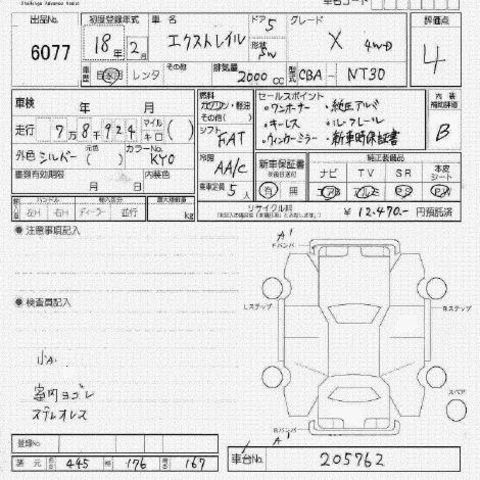 Shizuoka Advance Aucti
車名コード
出品No. 6077
初度登録年式 18年 2月
車名 エクストレイル
ドア 5 形状 SW
グレード X 4WD
評価点 4
車歴 自家用 レンタ その他
排気量 2000cc
型式 CBA- NT30
車検 年 月
走行 7万8千924 マイル キロ ( )
外色 シルバー 元色( ) カラーNo. KY0
書類有効期限 月 日 内装色
燃料 ガソリン・軽油 その他( )
シフト FAT
冷房 AA/C
乗車定員 5人
セールスポイント
・ワンオーナー ・純正アルミ
・キーレス ・ルーフレール
・ウィンカーミラー ・新車時保証書
内装補助評価 B
新車保証書 有 無
純正装備品
ナビ TV SR 本皮シート
エアB アルミ PS PW
ハンドル 左H 右H 輸入区分 ディーラー 並行 最大積載量 kg
リサイクル料 ¥12,470- 円預託済
●注意事項記入
●検査員記入
小A.
室内ヨゴレ
ステレオレス
A1
Fバンパ
Lステップ
Rステップ
スペア
Rバンパ
A1
登録No
諸元 長 445 幅 176 高 167
車台No. 205762